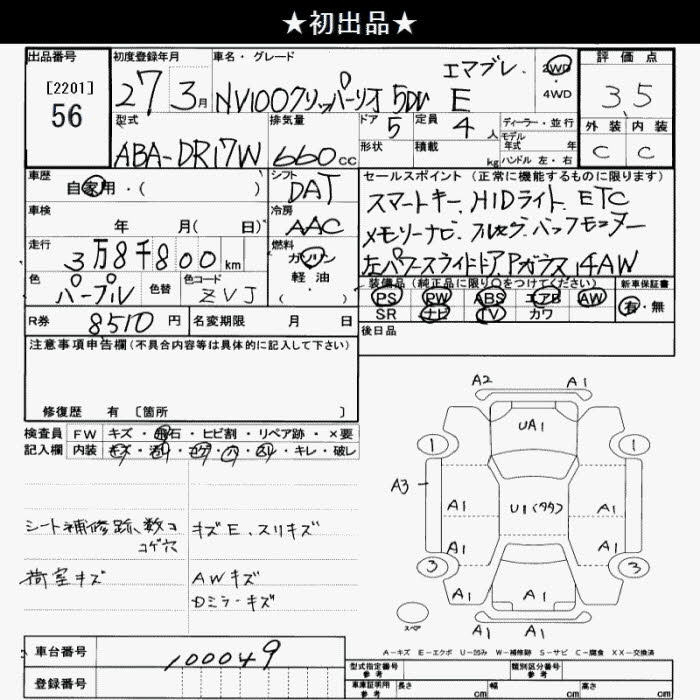 ★初出品★
出品番号 初度登録年月 車名・グレード 評価点
[2201]
56
27 3月 NV100クリッパーリオ 5DW エマブレ. E 2WD 4WD 3.5
型式 排気量 ドア 定員 ディーラー・並行 外装 内装
ABA-DR17W 660cc 5 4人 モデル年式 年 C C
形状 積載 kg ハンドル 左・右
車歴 シフト セールスポイント (正常に機能するものに限ります)
自家用・( ) DAT スマートキー. HIDライト. ETC
車検 冷房
年 月(日) AAC メモリーナビ. フルセグ. バックモニター
走行 燃料
3万8千800km ガソリン 左パワースライドドア. Pガラス. 14AW
色 色替 色コード 軽油 装備品(純正品に限り○をつけてください) 新車保証書
パープル ZVJ ( ・ ) PS PW ABS エアB AW 有・無
SR ナビ TV カワ
R券 8510円 名変期限 月 日 後日品
注意事項申告欄(不具合内容等は具体的に記入して下さい)
修復歴 有 [箇所 ]
検査員 FW キズ・飛石・ヒビ割・リペア跡・×要
記入欄 内装 キズ・汚れ・コゲ・穴・スリ・キレ・破レ
A2 A1
UA1
1 1
A3
A1 U1(タタ) A1
A1 A1
3 3
A1 A1 A1
スペア
A1 A1
シート補修跡、数ヶ コゲ穴
キズE、スリキズ
荷室キズ
AWキズ
Dミラーキズ
A-キズ E-エクボ U-凹み W-補修跡 S-サビ C-腐食 XX-交換済
車台番号 100049
登録番号
型式指定番号 参考 類別区分番号 参考
車庫証明用 参考 長さ cm 幅 cm 高さ cm